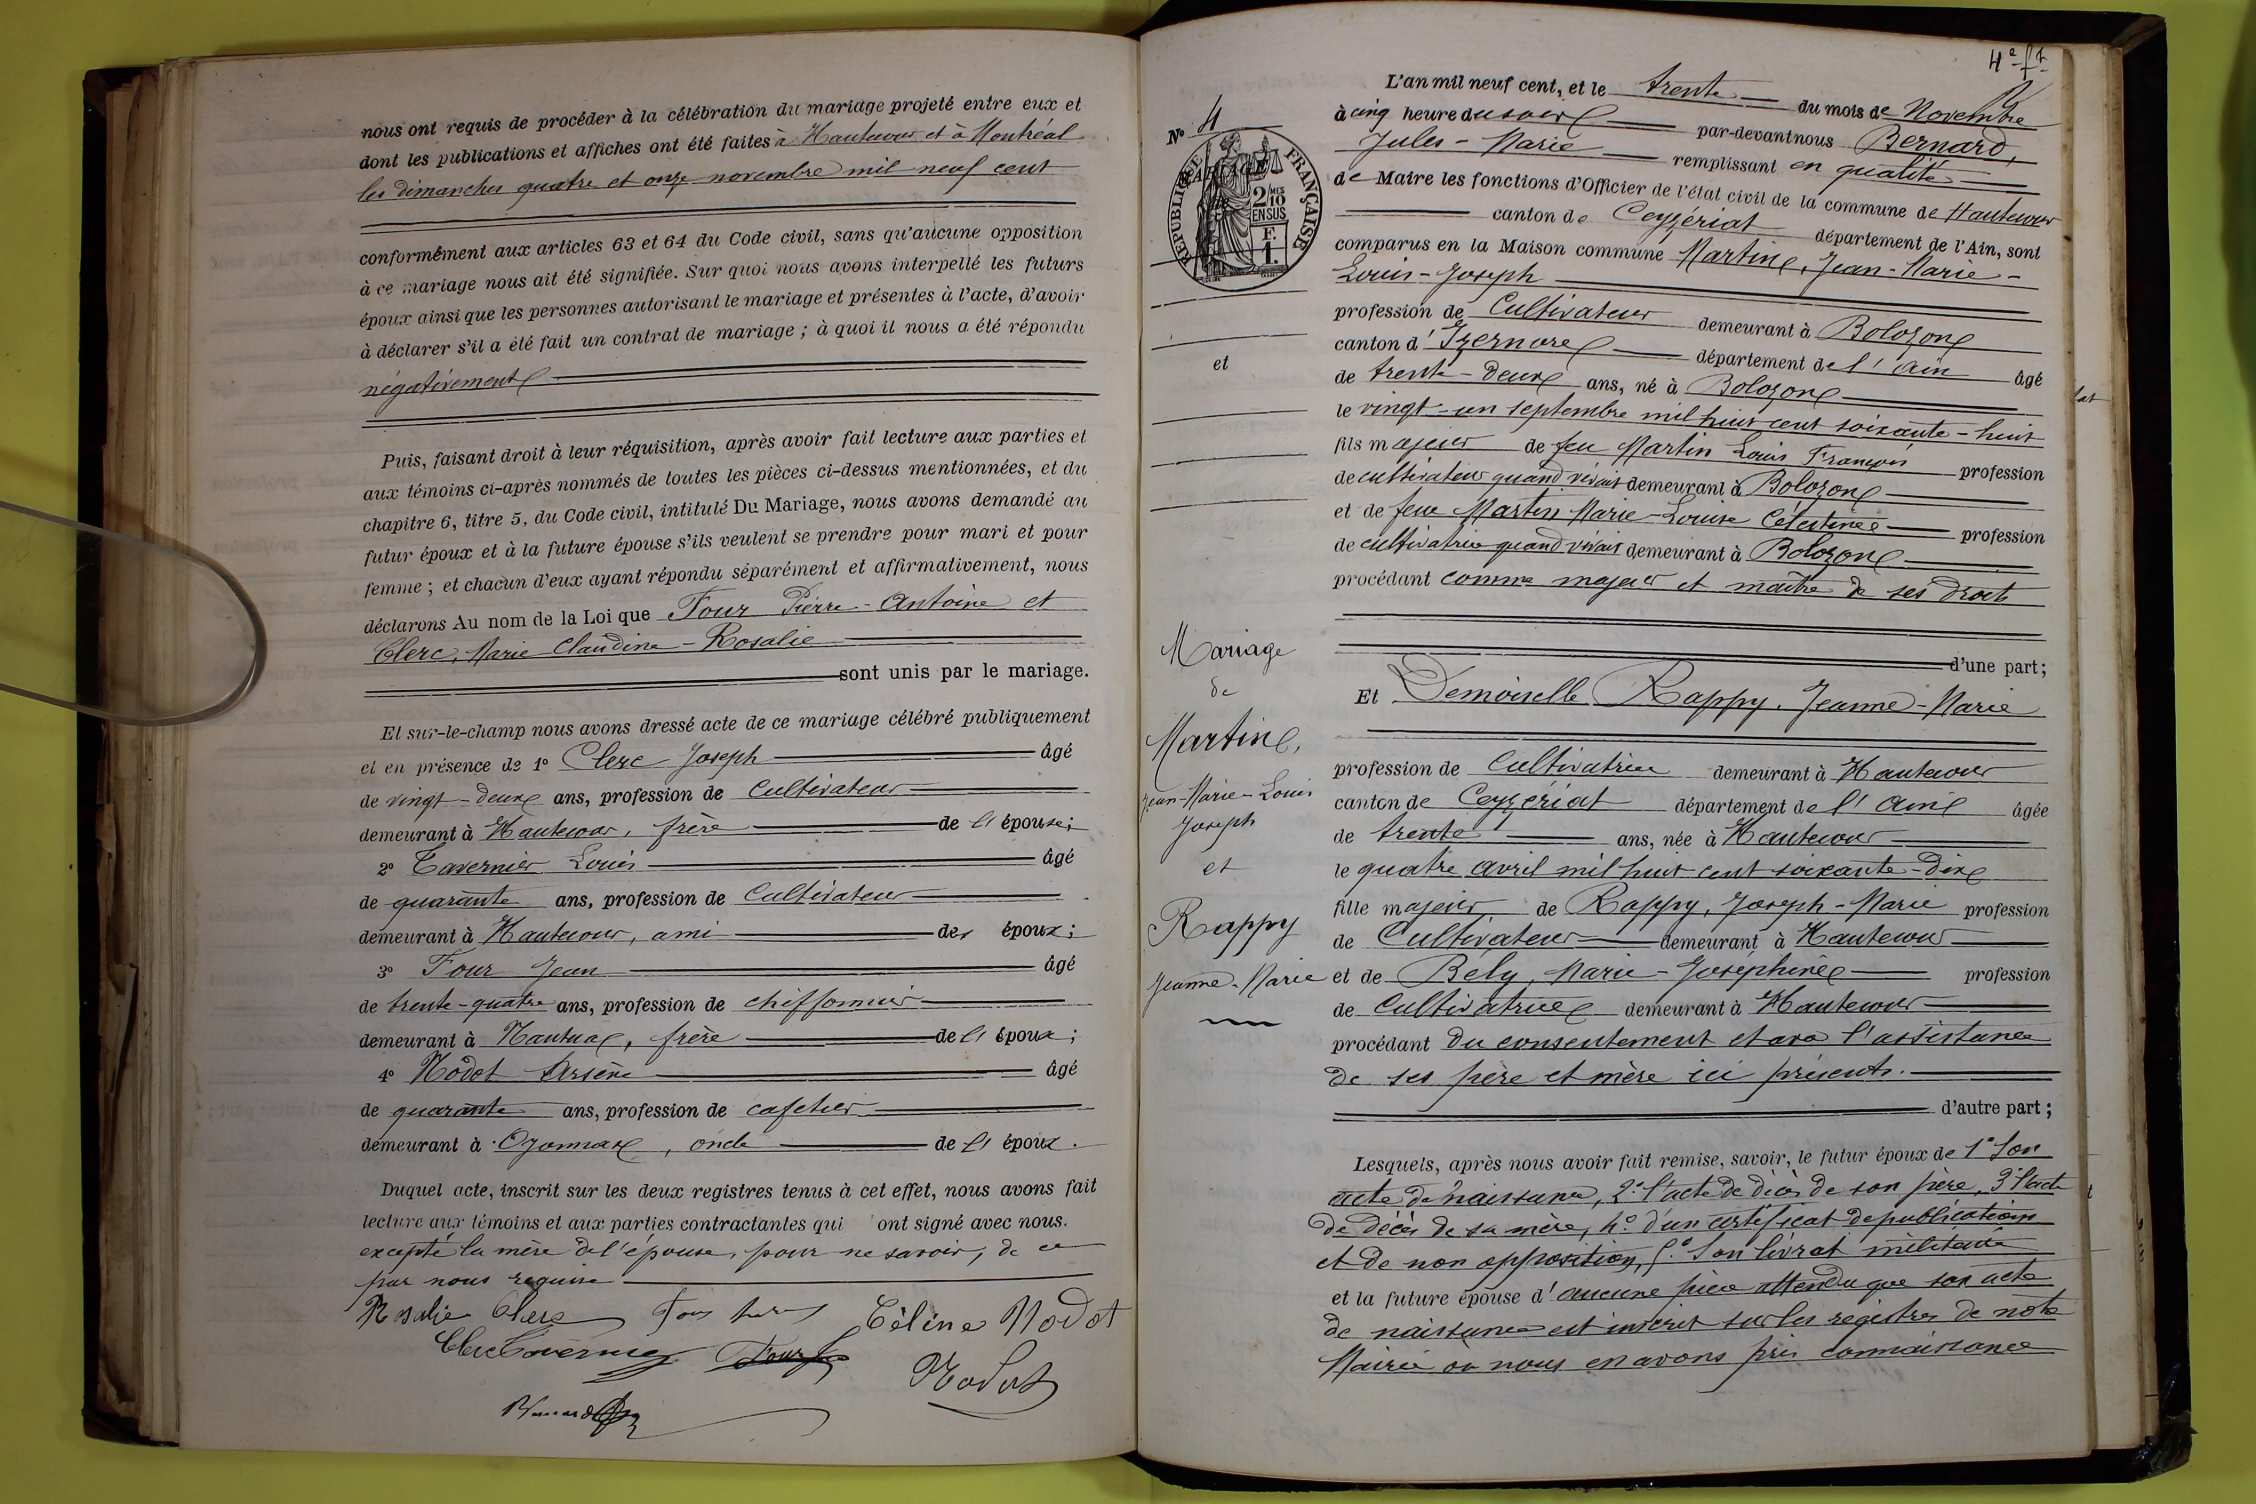 nous ont requis de procéder à la célébration du mariage projeté entre eux et
dont les publications et affiches ont été faites à Hautecour et à Montréal
les dimanches quatre et onze novembre mil neuf cent
conformément aux articles 63 et 64 du Code civil, sans qu'aucune opposition
à ce mariage nous ait été signifiée. Sur quoi nous avons interpellé les futurs
époux ainsi que les personnes autorisant le mariage et présentes à l'acte, d'avoir
à déclarer s'il a été fait un contrat de mariage ; à quoi il nous a été répondu
négativement
Puis, faisant droit à leur réquisition, après avoir fait lecture aux parties et
aux témoins ci-après nommés de toutes les pièces ci-dessus mentionnées, et du
chapitre 6, titre 5, du Code civil, intitulé Du Mariage, nous avons demandé au
futur époux et à la future épouse s'ils veulent se prendre pour mari et pour
femme ; et chacun d'eux ayant répondu séparément et affirmativement, nous
déclarons Au nom de la Loi que Four Pierre-Antoine et
Clerc, Marie Claudine-Rosalie
sont unis par le mariage.
Et sur-le-champ nous avons dressé acte de ce mariage célébré publiquement
et en présence de 1° Clerc Joseph âgé
de vingt-deux ans, profession de Cultivateur
demeurant à Hautecour, frère de l'épouse;
2° Tavernier Louis âgé
de quarante ans, profession de Cultivateur
demeurant à Hautecour, ami des époux;
3° Four Jean âgé
de trente-quatre ans, profession de chiffonnier
demeurant à Nantua, frère de l'époux;
4° Nodet Arsène âgé
de quarante ans, profession de cafetier
demeurant à Oyonnax, oncle de l'époux.
Duquel acte, inscrit sur les deux registres tenus à cet effet, nous avons fait
lecture aux témoins et aux parties contractantes qui ont signé avec nous.
excepté la mère de l'épouse, pour ne savoir, de ce
par nous requise
Rosalie Clerc Four Céline Nodot
Clerc Tavernier Four
Nodot
Bernard
4e ft
N° 4
RÉPUBLIQUE FRANÇAISE
2 MES
10
EN SUS
F.
1.
et
Mariage
de
Martin,
Jean-Marie-Louis
Joseph
et
Rappy
Jeanne-Marie
L'an mil neuf cent, et le trente du mois de Novembre
à cinq heure du soir par-devant nous Bernard,
Jules-Marie remplissant en qualité
de Maire les fonctions d'Officier de l'état civil de la commune de Hautecour
canton de Ceyzériat département de l'Ain, sont
comparus en la Maison commune Martin, Jean-Marie-
Louis-Joseph
profession de Cultivateur demeurant à Bolozon
canton d'Izernore département de l'Ain âgé
de trente-deux ans, né à Bolozon
le vingt-un septembre mil huit cent soixante-huit
fils majeur de feu Martin Louis François profession
de cultivateur quand vivait demeurant à Bolozon
et de feue Martin Marie-Louise Célestine profession
de cultivatrice quand vivait demeurant à Bolozon
procédant comme majeur et maître de ses droits
d'une part;
Et Demoiselle Rappy, Jeanne-Marie
profession de Cultivatrice demeurant à Hautecour
canton de Ceyzériat département de l'Ain âgée
de trente ans, née à Hautecour
le quatre avril mil huit cent soixante-dix
fille majeur de Rappy, Joseph-Marie profession
de Cultivateur demeurant à Hautecour
et de Bély, Marie-Joséphine profession
de Cultivatrice demeurant à Hautecour
procédant du consentement et avec l'assistance
de ses père et mère ici présents.
d'autre part;
Lesquels, après nous avoir fait remise, savoir, le futur époux de 1° son
acte de naissance, 2° l'acte de décès de son père, 3° l'acte
de décès de sa mère, 4° d'un certificat de publication
et de non opposition, 5° son livret militaire
et la future épouse d'aucune pièce attendu que son acte
de naissance est inscrit sur les registres de notre
Mairie où nous en avons pris connaissance